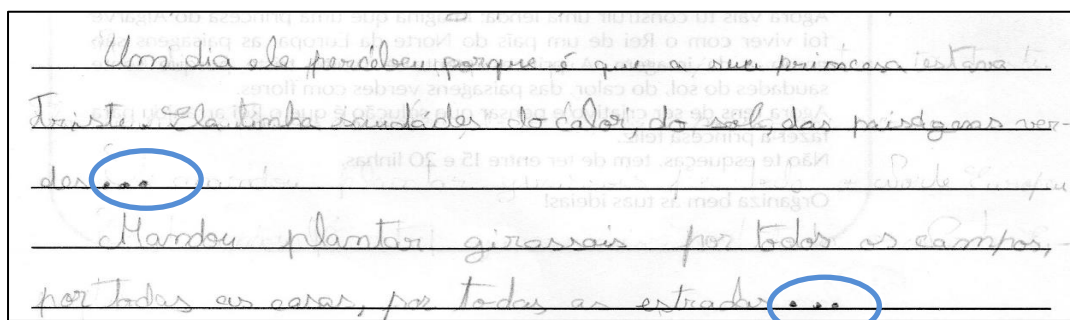 Um dia ele percebeu porque é que a sua princesa estava
triste. Ela tinha saudades do calor, do sol, de paisagens ver-
des...
Mandou plantar girassois por todos os campos,
por todas as casas, por todas as estradas...